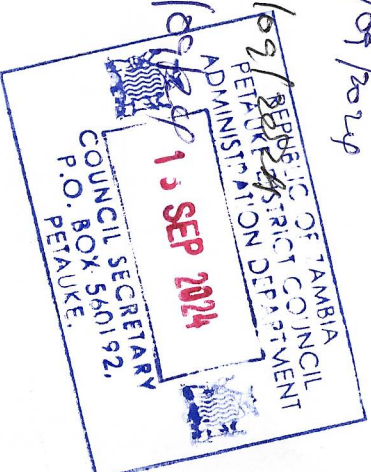 /09/2024
/09/2024
REPUBLIC OF ZAMBIA
PETAUKE DISTRICT COUNCIL
ADMINISTRATION DEPARTMENT
SEP 2024
COUNCIL SECRETARY
P.O. BOX 560192,
PETAUKE.